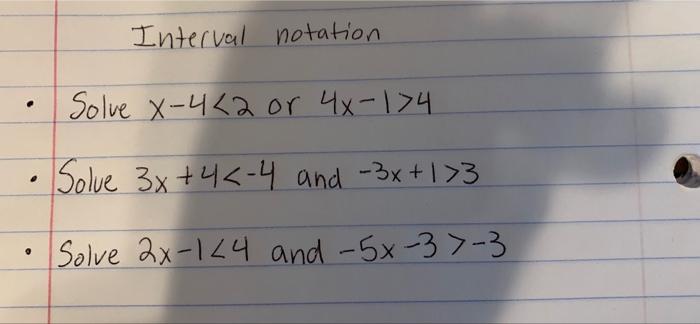 Interval notation
• Solve x-4<2 or 4x-1>4
• Solve 3x+4<-4 and -3x+1>3
• Solve 2x-1<4 and -5x-3>-3